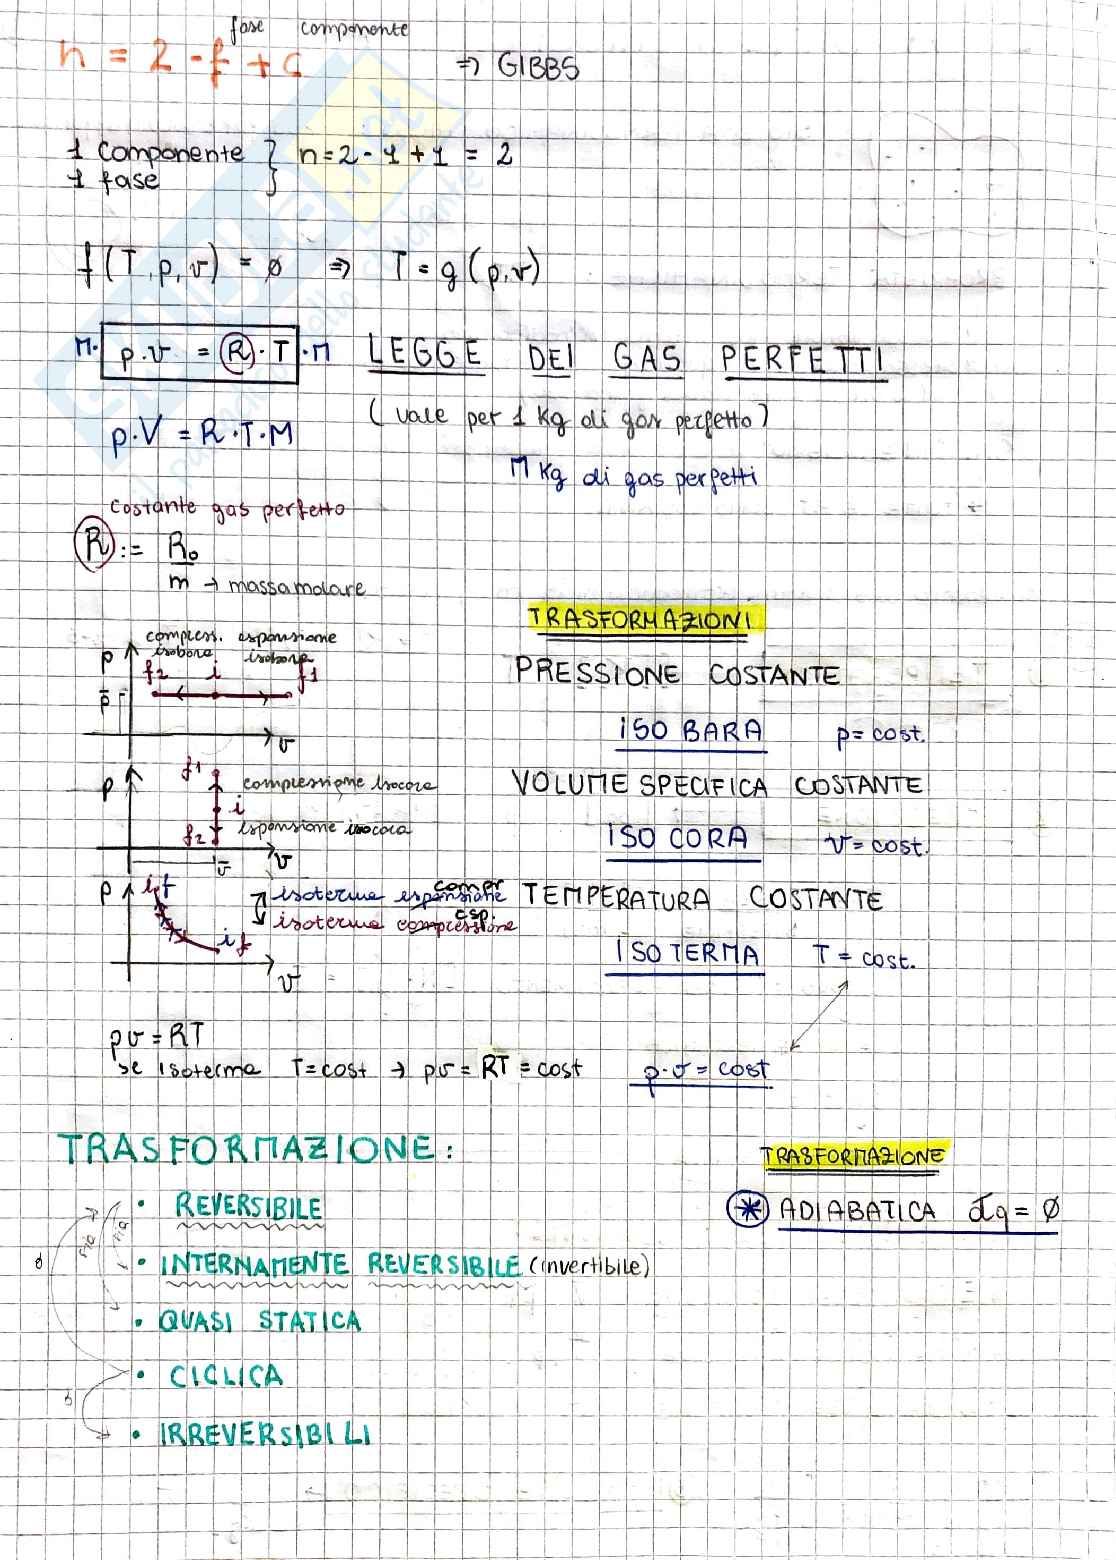 fase componente
n = 2 - f + c ⇒ GIBBS
1 componente } n = 2 - 1 + 1 = 2
1 fase
f (T, p, v) = ø ⇒ T = g (p, v)
M· p·v = R·T ·M LEGGE DEI GAS PERFETTI
(vale per 1 Kg di gas perfetto)
p·V = R·T·M
M Kg di gas perfetti
Costante gas perfetto
R := R₀
m → massa molare
TRASFORMAZIONI
compress. espansione
p isobara isobara
f2 i f1
p̄
v
PRESSIONE COSTANTE
ISO BARA p = cost.
p f1 compressione isocora
i
f2 espansione isocora
v̄ v
VOLUME SPECIFICA COSTANTE
ISO CORA v = cost.
p i f isoterma espansione compr
isoterma compressione esp.
i f
v
TEMPERATURA COSTANTE
ISO TERMA T = cost.
pv = RT
se isoterma T = cost → pv = RT = cost p·v = cost
TRASFORMAZIONE:
• REVERSIBILE
• INTERNAMENTE REVERSIBILE (invertibile)
• QUASI STATICA
• CICLICA
• IRREVERSIBILI
TRASFORMAZIONE
* ADIABATICA đq = ø
SKUOLA.net